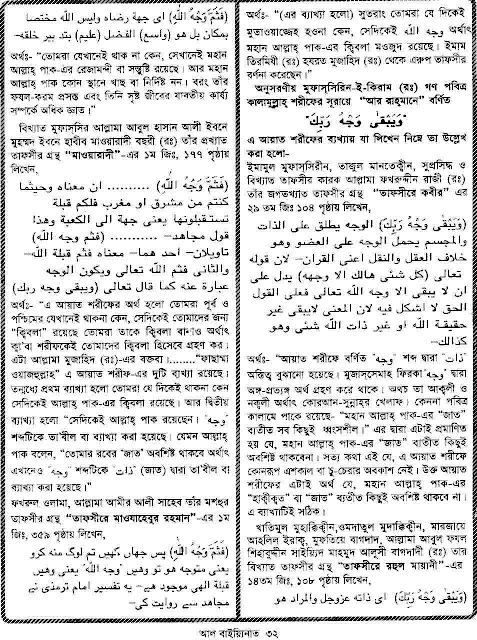 (فَثَمَّ وَجْهُ اللّٰهِ) اى جهة رضاه وليس الله مختصا
بمكان بل هو (واسع) الفضل (عليم) بتدبير خلقه-
অর্থঃ- "তোমরা যেখানেই থাক না কেন, সেখানেই মহান
আল্লাহ্ পাক-এর রেজামন্দী বা সন্তুষ্টি রয়েছে। আর মহান
আল্লাহ্ পাক কোন স্থানে খাছ বা নির্দিষ্ট নন। বরং তাঁর
ফযল-করম প্রশস্ত এবং তিনি সৃষ্ট জীবের যাবতীয় কার্য্য
সম্পর্কে অধিক জ্ঞাত।"
বিখ্যাত মুফাস্সির আল্লামা আবুল হাসান আলী ইবনে
মুহম্মদ ইবনে হাবীব মাওয়ারাদী বছরী (রঃ) তাঁর প্রখ্যাত
তাফসীর গ্রন্থ "মাওয়ারাদী"-এর ১ম জিঃ, ১৭৭ পৃষ্ঠায়
লিখেন,
(فَثَمَّ وَجْهُ اللّٰهِ) .......... ان معناه وحيثما
كنتم من مشرق او مغرب فلكم قبلة
تستقبلونها يعنى جهة الى الكعبة وهذا
قول مجاهد- .......... (فثم وجه الله)
تاويلان- احد هما- معناه فثم قبلة الله-
والثانى فثم الله تعالى ويكون الوجه
عبارة عنه كما قال تعالى (ويبقى وجه ربك)
অর্থঃ- "এ আয়াত শরীফের অর্থ হলো তোমরা পূর্ব ও
পশ্চিমের যেখানেই থাকনা কেন, সেদিকেই তোমাদের জন্য
"ক্বিবলা" রয়েছে তোমরা তাকে ক্বিবলা বানাও অর্থাৎ
ক্বা'বা শরীফকেই তোমাদের ক্বিবলা হিসেবে গ্রহণ কর।
এটা আল্লামা মুজাহিদ (রঃ)-এর বক্তব্য।........"ফাছাম্মা
ওয়াজহুল্লাহ্" এ আয়াত শরীফ-এর দুটি ব্যখ্যা রয়েছে।
তন্মধ্যে প্রথম ব্যাখ্যা হলো তোমরা যে দিকেই থাকনা কেন
সেদিকেই আল্লাহ্ পাক-এর ক্বিবলা রয়েছে। আর দ্বিতীয়
ব্যাখ্যা হলো "সেদিকেই আল্লাহ্ পাক রয়েছেন। "وجه"
শব্দটিকে তা'বীল বা ব্যাখ্যা করা হয়েছে। যেমন আল্লাহ্
পাক বলেন, "তোমার রবের 'জাত' অবশিষ্ট থাকবে অর্থাৎ
এখানেও "وجه" শব্দটিকে "ذات" (জাত) দ্বারা তা'বীল বা
ব্যাখ্যা করা হয়েছে।"
ফখরুল ওলামা, আল্লামা আমীর আলী সাহেব তাঁর মশহুর
তাফসীর গ্রন্থ "তাফসীরে মাওয়াহেবুর রহমান"-এর ১ম
জিঃ, ৩৫৯ পৃষ্ঠায় লিখেন,
(فَثَمَّ وَجْهُ اللّٰهِ) پس جهاں كهيں تم لوگ منه كرو
يعنى متوجه هو تو وهيں "وجه الله" يعنى وهيں
قبلۀ الهى موجود هے- يه تفسير امام ترمذى نے
مجاهد سے روايت كى-
অর্থঃ- "(এর ব্যাখ্যা হলো) সুতরাং তোমরা যে দিকেই
মুতাওয়াজ্জেহ হওনা কেন, সেদিকেই وجه الله অর্থাৎ
মহান আল্লাহ্ পাক-এর ক্বিবলা মওজুদ রয়েছে। ইমাম
তিরমিযী (রঃ) হযরত মুজাহিদ (রঃ) থেকে এরুপ তাফসীর
বর্ণনা করেছেন।"
অনুসরণীয় মুফাস্সিরিন-ই-কিরাম (রঃ) গণ পবিত্র
কালামুল্লাহ্ শরীফের সূরায়ে "আর রাহ্মানে" বর্ণিত
وَيَبْقٰى وَجْهُ رَبِّكَ
এ আয়াত শরীফের ব্যাখ্যায় যা লিখেন নিম্নে তা উল্লেখ
করা হলো-
ইমামুল মুফাস্সিরীন, তাজুল মানতেক্বীন, সুপ্রসিদ্ধ ও
বিখ্যাত তাফসীর কারক আল্লামা ফখরুদ্দীন রাজী (রঃ)
তাঁর জগতখ্যাত তাফসীর গ্রন্থ "তাফসীরে কবীর" এর
২৯ তম জিঃ ১০৪ পৃষ্ঠায় লিখেন,
(وَيَبْقٰى وَجْهُ رَبِّكَ) الوجه يطلق على الذات
والمجسم يحمل الوجه على العضو وهو
خلاف العقل والنقل اعنى القران- لان قوله
تعالى (كل شئى هالك الا وجهه) يدل على
ان لا يبقى الا وجه الله تعالى فعلى القول
الحق لا اشكال فيه لان المعنى لايبقى غير
حقيقة الله او غير ذات الله شئى وهو
كذالك-
অর্থঃ- "আয়াত শরীফে বর্ণিত "وجه" শব্দ দ্বারা "ذات"
অস্তিত্ব বুঝানো হয়েছে। মুজাস্সেমাহ ফিরকা "وجه" দ্বারা
অঙ্গ-প্রত্যঙ্গ অর্থ গ্রহণ করে থাকে। অথচ তা আকুলী ও
নকুলী অর্থাৎ কোরআন-সুন্নাহর খেলাফ। কেননা পবিত্র
কালামে পাকে রয়েছে- "মহান আল্লাহ্ পাক-এর "জাত"
ব্যতীত সব কিছুই ধ্বংসশীল।" এর দ্বারা এটাই প্রমাণিত
হয় যে, মহান আল্লাহ্ পাক-এর "জাত" ব্যতীত কিছুই
অবশিষ্ট থাকবেনা। সত্য কথা এই যে, এ আয়াত শরীফে
কোনরূপ এশকাল বা চু-চেরার অবকাশ নেই। উক্ত আয়াত
শরীফের এটাই অর্থ যে, মহান আল্লাহ্ পাক-এর
"হাক্বীক্বত" বা "জাত" ব্যতীত কিছুই অবশিষ্ট থাকবে না।
এ ব্যাখ্যাটিই সঠিক।
খাতিমুল মুহাক্কিক্বীন,ওমদাতুল মুদাক্কিক্বীন, মারজায়ে
আহলিল ইরাক্ব, মুফতিয়ে বাগদাদ, আল্লামা আবুল ফযল
শিহাবুদ্দীন সাইয়্যিদ মাহমুদ আলুসী বাগদাদী (রঃ) তার
বিখ্যাত তাফসীর গ্রন্থ "তাফসীরে রুহুল মায়ানী"-এর
১৪তম জিঃ, ১০৮ পৃষ্ঠায় লিখেন,
(وَيَبْقٰى وَجْهُ رَبِّكَ) اى ذاته عزوجل والمراد هو
আল বাইয়্যিনাত ৩২